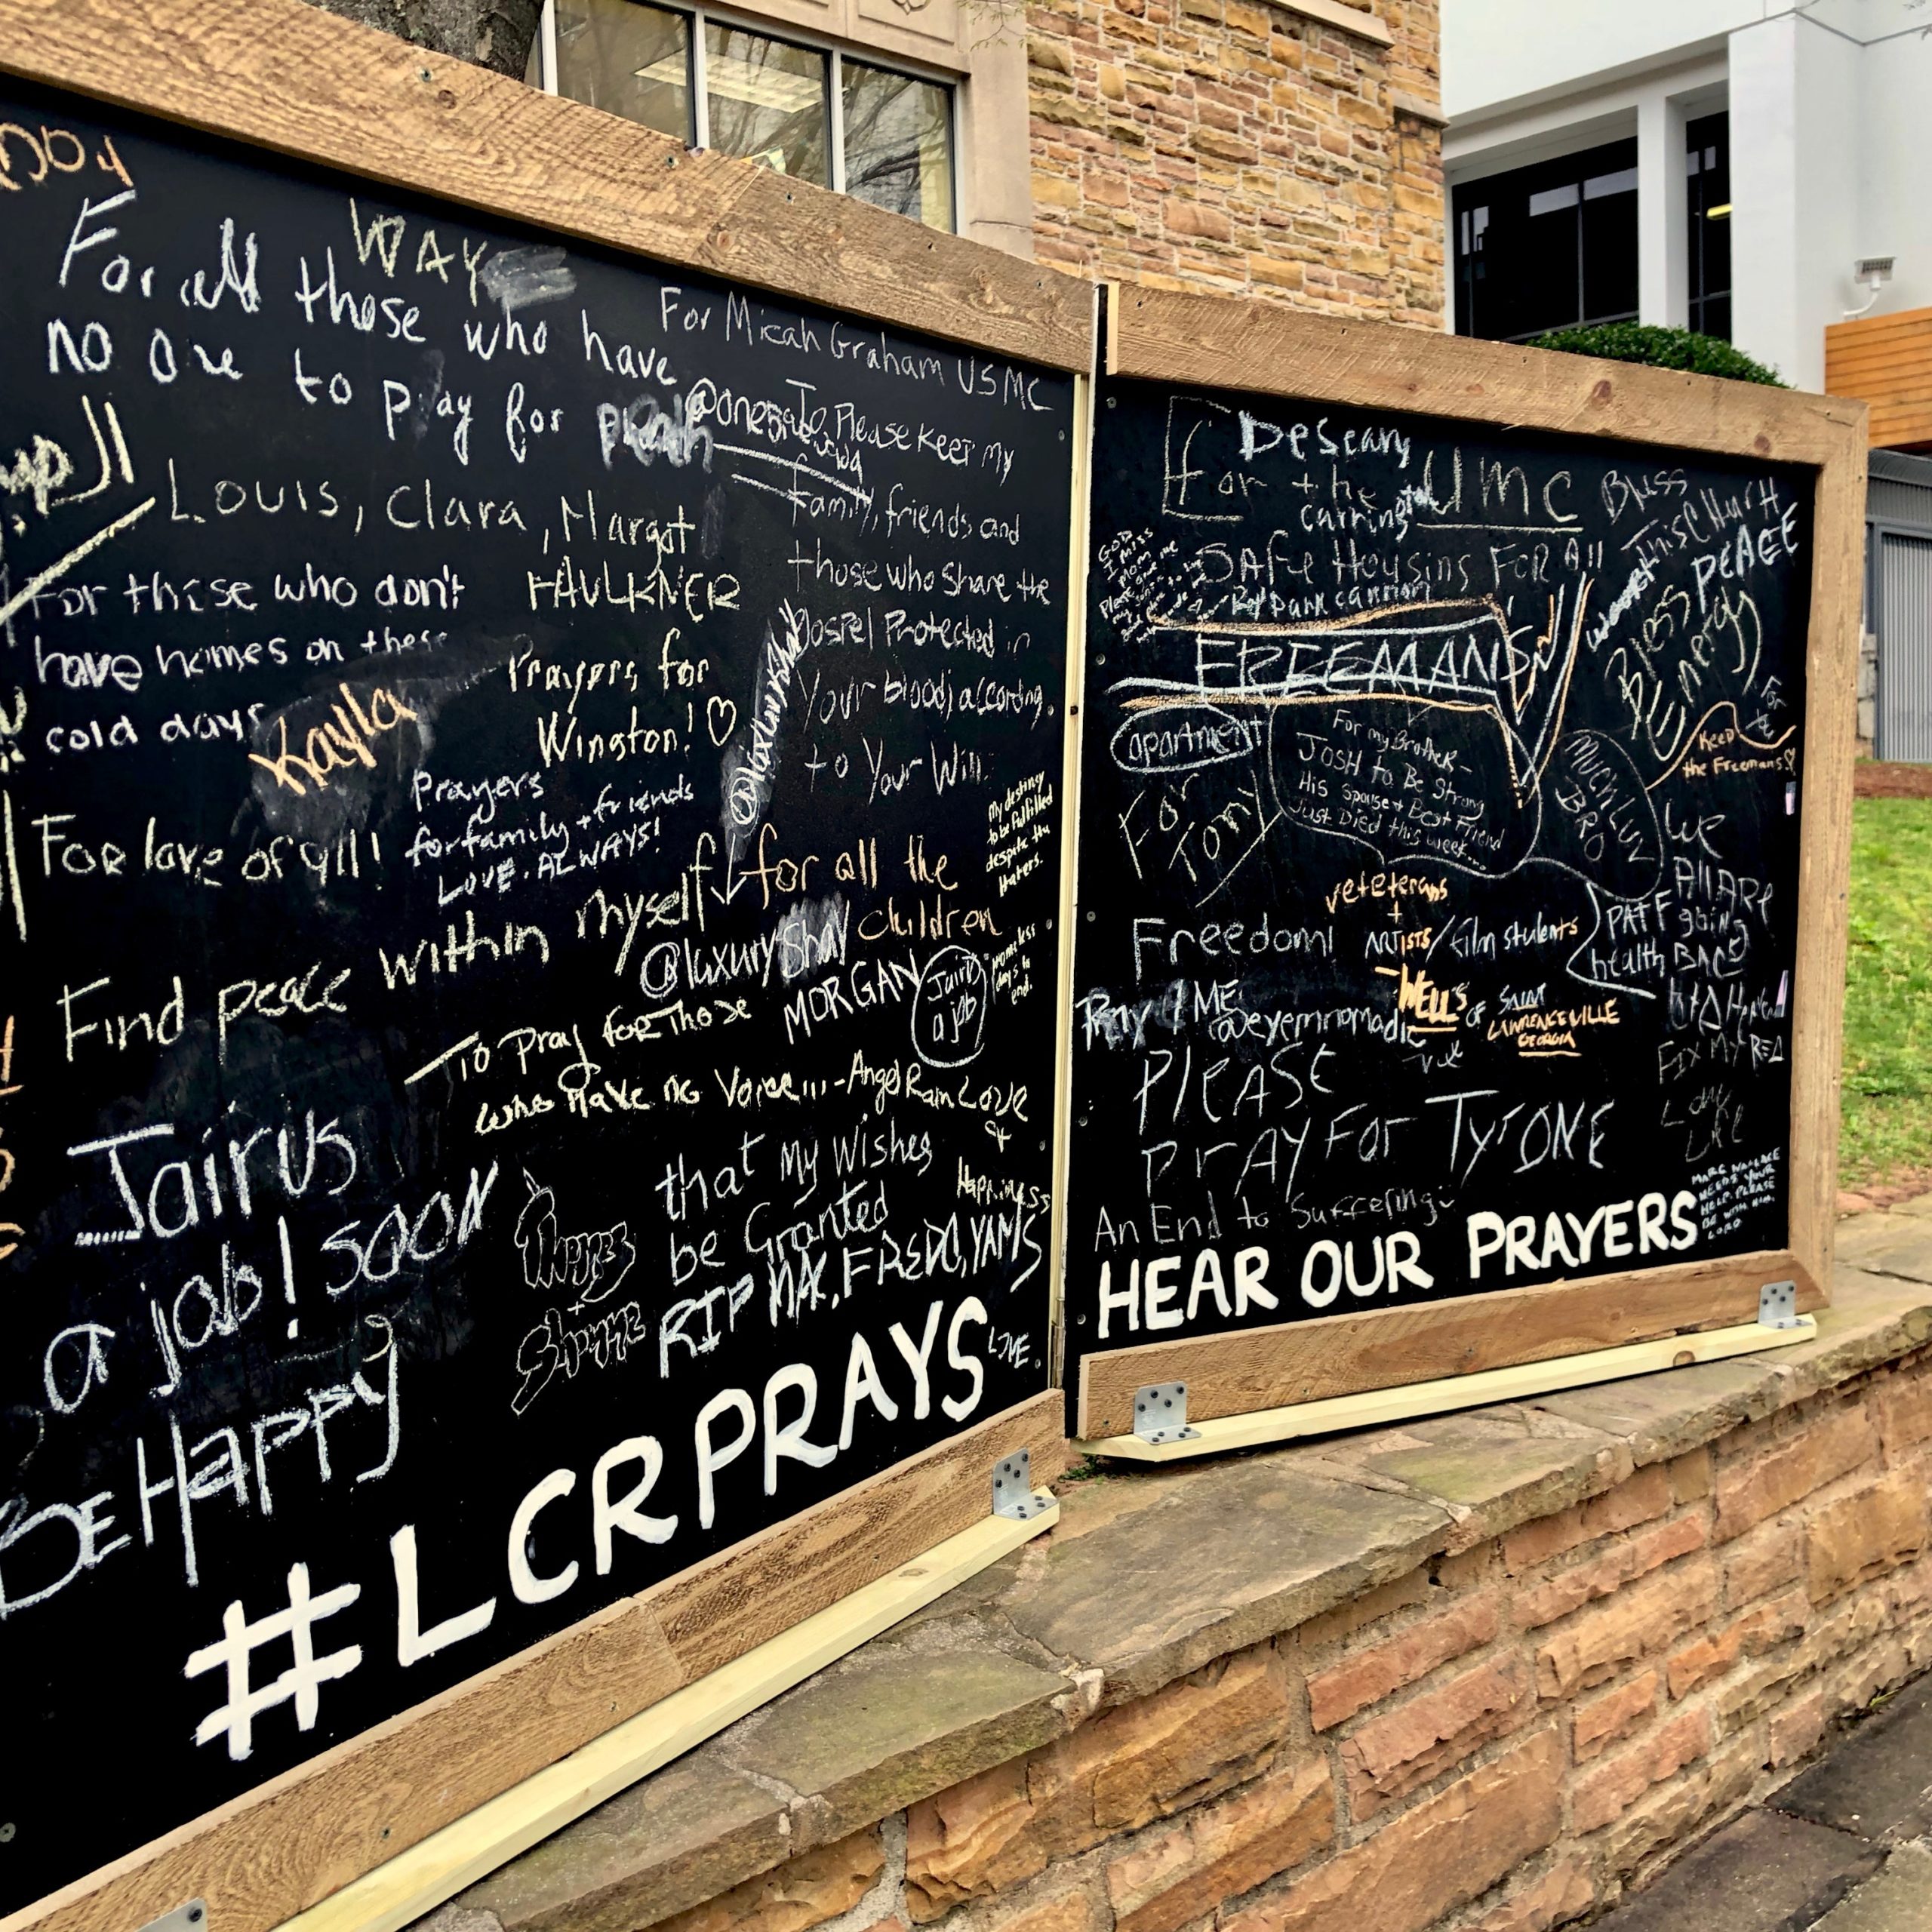 WAY
For all those who have
no one to pray for
For Micah Graham USMC
To Please Keep my
family, friends and
those who share the
Gospel Protected in
Your blood, according
to Your Will
Louis, Clara, Margot
FAULKNER
For those who don't
have homes on these
cold days
Kayla
Prayers for
Winston! ♡
Prayers
for family + friends
LOVE. ALWAYS!
For love of y'all!
Find peace within myself
for all the
children
@luxuryshay
My destiny
to be fulfilled
despite the
haters.
Homeless
days to
end.
MORGAN
Jairus
a job
To pray for Those
who Have no Voice... -Angel Ram
Love
+
Happiness
Jairus
a job! SOON
BE Happy
that my Wishes
be Granted
RIP MA, FREDO, YAMS
LOVE
#LCRPRAYS
DeSean
For the UMC
Carrington
Bless
This CHurcH
PEACE
GOD
I miss
mom
SAFe Housing FOR All
FREEMANS
Bless
Energy
apartment
For my Brother-
JOSH to Be Strong
His spouse + Best Friend
Just Died this week...
MUCH LUV
BRO
For
the
Keep
the Freemans ♡
For
Tom
We
All ARe
going
BACK
veteterans
+
ARTISTS / film students
Freedom!
health
WELL'S OF SAINT
LAWRENCEVILLE
GEORGIA
FIX MY
PLEASE
PrAY For TyrONE
An End to Suffering
MARC WALLACE
NEEDS YOUR
HELP. PLEASE
BE WITH HIM,
LORD
HEAR OUR PRAYERS